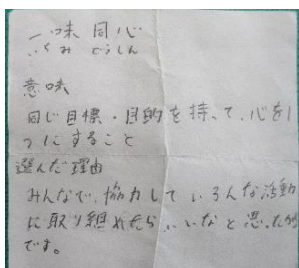 一味同心
いちみ どうしん
意味
同じ目標・目的を持って、心を1
つにすること
選んだ理由
みんなで、協力していろんな活動
に取り組れたら、いいなと思ったから
です。